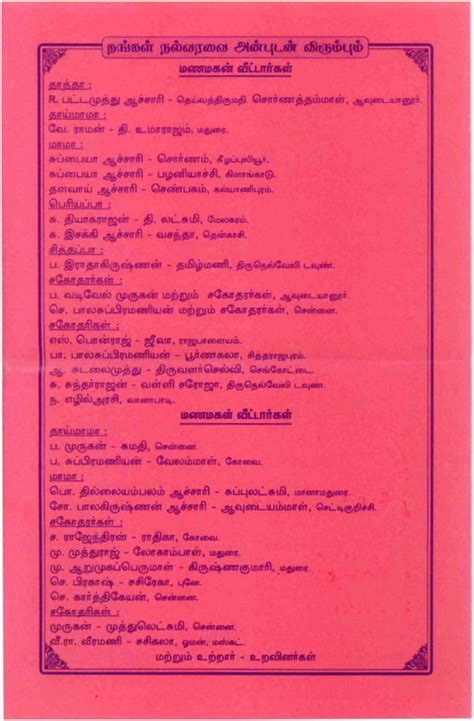 தங்கள் நல்வரவை அன்புடன் விரும்பும்
மணமகன் வீட்டார்கள்
தாத்தா :
R. பட்டமுத்து ஆச்சாரி - தெய்வத்திருமதி. சொர்ணத்தம்மாள், ஆவுடையானூர்.
தாய்மாமா :
வே. ராமன் - தி. உமாராஜம், மதுரை.
மாமா :
சுப்பையா ஆச்சாரி - சொர்ணம், கீழப்புலியூர்.
சுப்பையா ஆச்சாரி - பழனியாச்சி, கிளாங்காடு.
தளவாய் ஆச்சாரி - செண்பகம், கல்யாணிபுரம்.
பெரியப்பா :
சு. தியாகராஜன் - தி. லட்சுமி, மேலகரம்.
சு. இசக்கி ஆச்சாரி - வசந்தா, தென்காசி.
சித்தப்பா :
ப. இராதாகிருஷ்ணன் - தமிழ்மணி, திருநெல்வேலி டவுண்.
சகோதரர்கள் :
ப. வடிவேல் முருகன் மற்றும் சகோதரர்கள், ஆவுடையானூர்.
செ. பாலசுப்பிரமணியன் மற்றும் சகோதரர்கள், சென்னை.
சகோதரிகள் :
எஸ். பொன்ராஜ் - ஜீவா, ராஜபாளையம்.
பா. பாலசுப்பிரமணியன் - பூர்ணகலா, சித்தராஜபுரம்.
ஆ. சுடலைமுத்து - திருவளர்செல்வி, செங்கோட்டை.
சு. சுந்தர்ராஜன் - வள்ளி சரோஜா, திருநெல்வேலி டவுண்.
ந. எழில்அரசி, வாணாபாடி.
மணமகள் வீட்டார்கள்
தாய்மாமா :
ப. முருகன் - சுமதி, சென்னை.
ப. சுப்பிரமணியன் - வேலம்மாள், கோவை.
மாமா :
பொ. தில்லையம்பலம் ஆச்சாரி - சுப்புலட்சுமி, மானாமதுரை.
சோ. பாலகிருஷ்ணன் ஆச்சாரி - ஆவுடையம்மாள், செட்டிகுறிச்சி.
சகோதரர்கள் :
ச. ராஜேந்திரன் - ராதிகா, கோவை.
மு. முத்துராஜ் - லோகாம்பாள், மதுரை.
மு. ஆறுமுகப்பெருமாள் - கிருஷ்ணகுமாரி, மதுரை.
செ. பிரகாஷ் - சசிரேகா, புனே.
செ. கார்த்திகேயன், சென்னை.
சகோதரிகள் :
முருகன் - முத்துலெட்சுமி, சென்னை.
வீ.ரா. வீரமணி - சசிகலா, ஓமன், மஸ்கட்.
மற்றும் உற்றார் - உறவினர்கள்